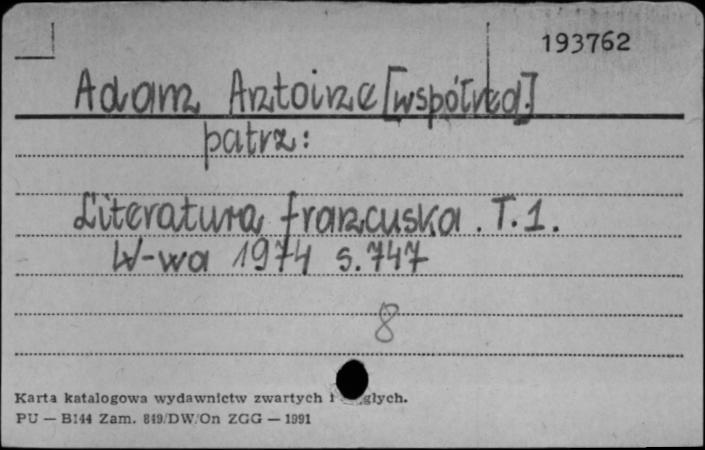 193762
Adam Antoine [współred.]
patrz:
Literatura francuska. T.1.
W-wa 1974 s.747
8
Karta katalogowa wydawnictw zwartych i głych.
PU — B144 Zam. 849/DW/On ZGG — 1991